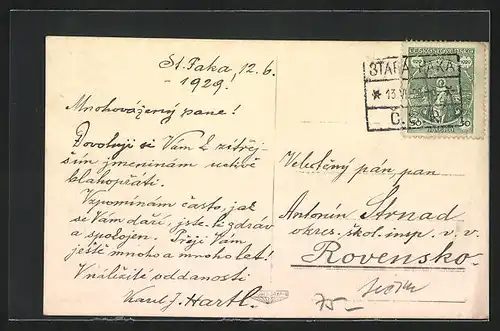 St. Paka, 12. 6.
1929.
Mnohovážený pane!
Dovoluji si Vám k zítřej-
ším jmeninám uctivě
blahopřáti.
Vzpomínám často, jak
se Vám daří, jste-li zdráv
a spokojen. Přeji Vám
ještě mnoho a mnoho let!
V náležité oddanosti
Karel J. Hartl.
STARÁ PAKA
* 13.VI. *
ČESKOSLOVENSKO
50 50
Velectěný pán, pan
Antonín Strnad
okres. škol. insp. v. v.
Rovensko.
75–